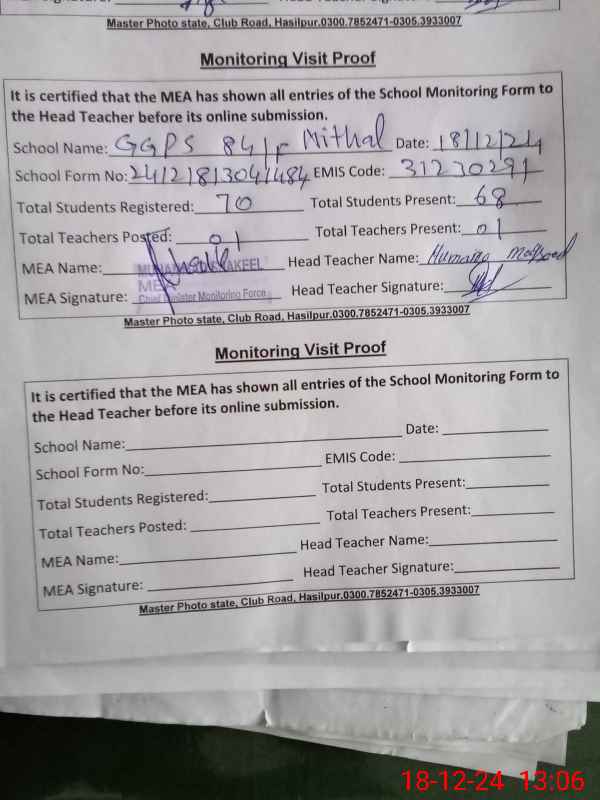 Master Photo state, Club Road, Hasilpur.0300.7852471-0305.3933007
Monitoring Visit Proof
It is certified that the MEA has shown all entries of the School Monitoring Form to
the Head Teacher before its online submission.
School Name: GGPS 84/F Nithal Date: 18/12/24
School Form No: EMIS Code: 31230291
Total Students Registered: 70 Total Students Present: 68
Total Teachers Posted: 01 Total Teachers Present: 01
MEA Name: AKEEL Head Teacher Name: Humaira Maqsood
MEA Signature: MEA Chief Minister Monitoring Force Head Teacher Signature:
Master Photo state, Club Road, Hasilpur.0300.7852471-0305.3933007
Monitoring Visit Proof
It is certified that the MEA has shown all entries of the School Monitoring Form to
the Head Teacher before its online submission.
School Name: Date:
School Form No: EMIS Code:
Total Students Registered: Total Students Present:
Total Teachers Posted: Total Teachers Present:
MEA Name: Head Teacher Name:
MEA Signature: Head Teacher Signature:
Master Photo state, Club Road, Hasilpur.0300.7852471-0305.3933007
18-12-24 13:06